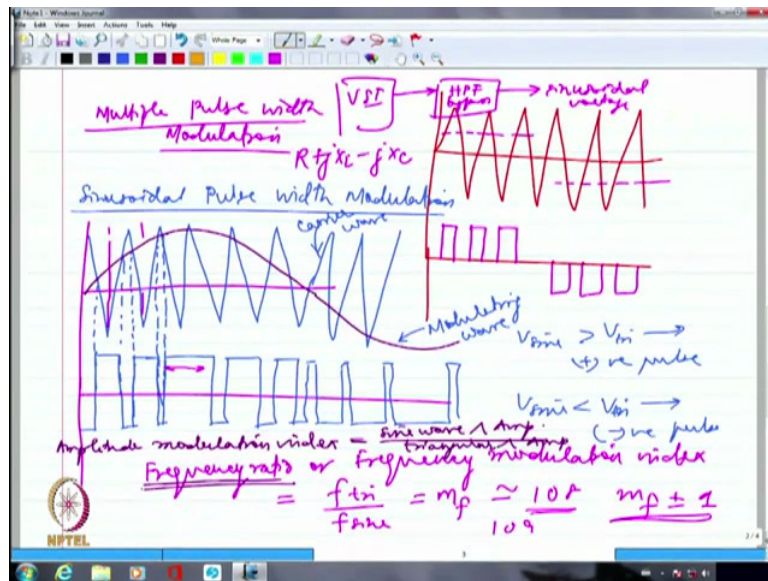 Note1 - Windows Journal
File Edit View Insert Actions Tools Help
Whole Page
B
Multiple Pulse width
Modulation
VSI
HPF
bypass
sinusoidal
voltage
R+jXL-jXC
Sinusoidal Pulse width Modulation
carrier
wave
Modulating
wave
Vsine > Vtri →
(+)ve pulse
Vsine < Vtri →
(-)ve pulse
Amplitude modulation index = sine wave Amp.
triangular Amp
Frequency ratio or Frequency modulation index
= ftri = mf ≃ 108 mf ± 1
fsine 109
NPTEL
3
2/4